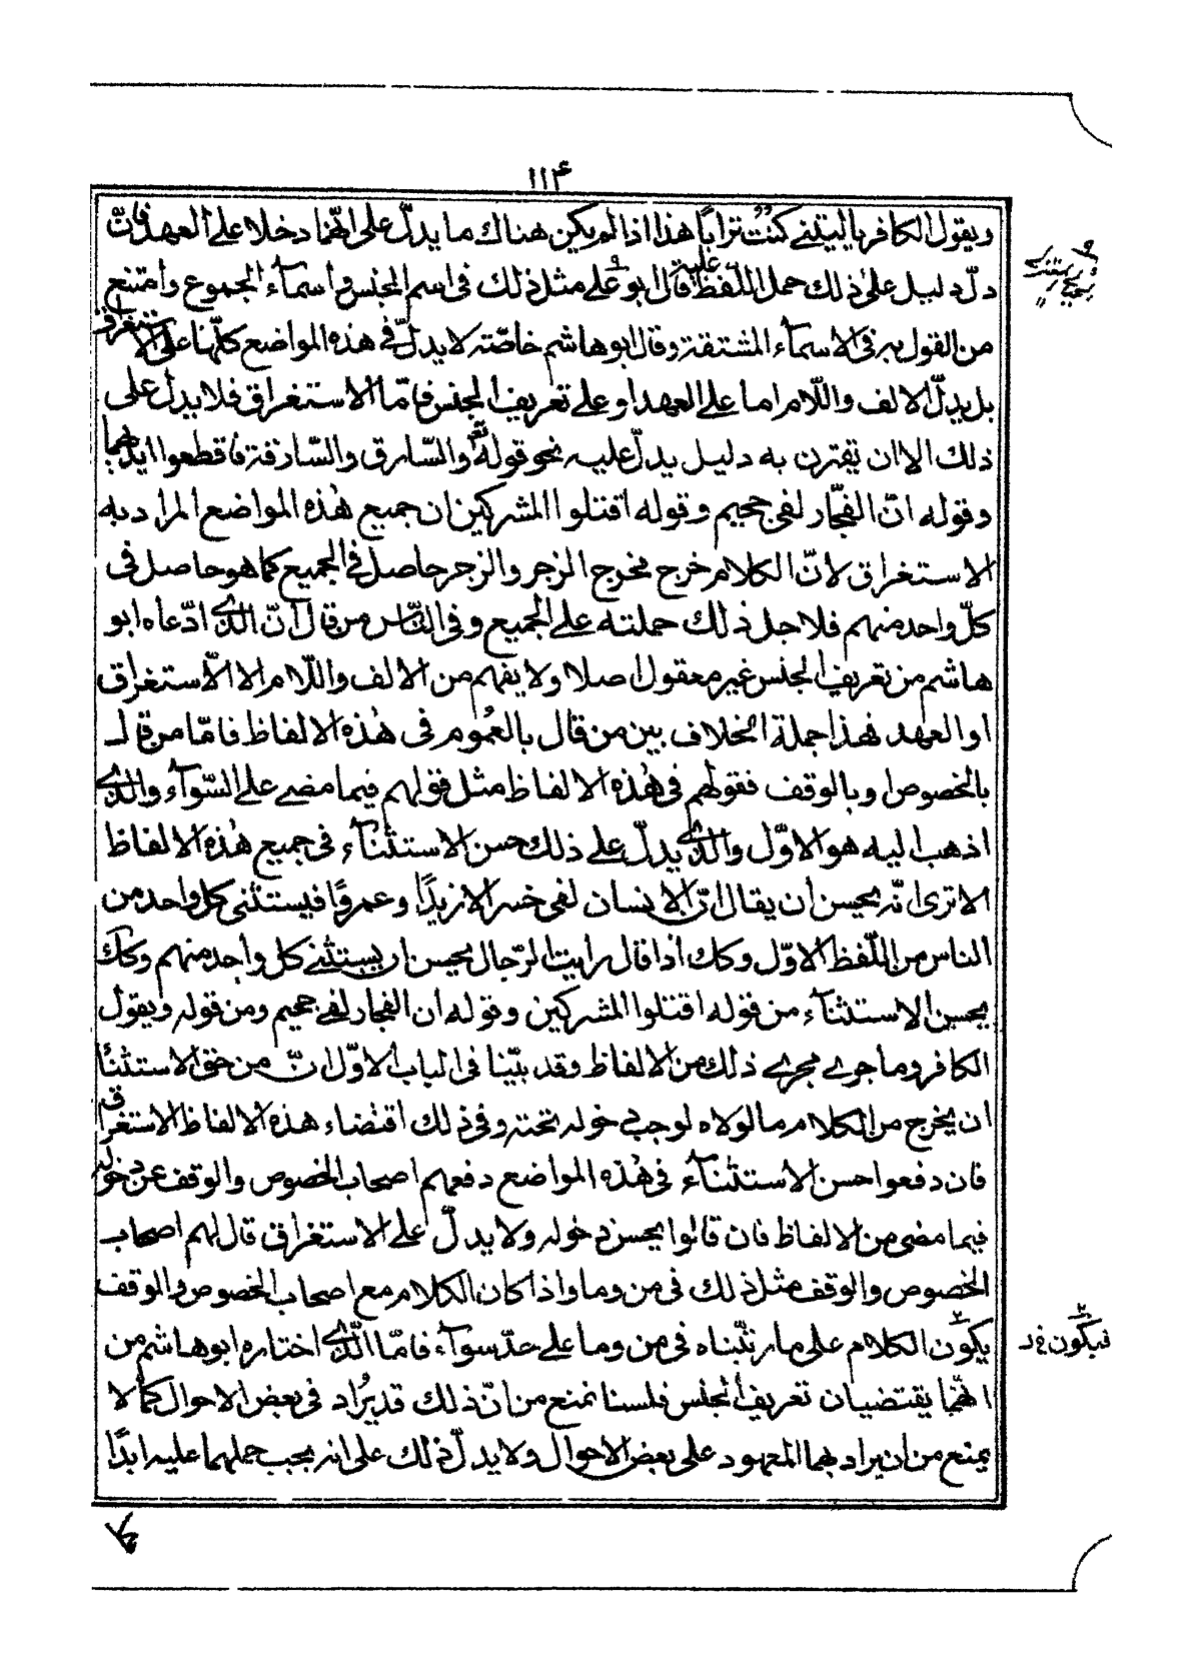 ١١۴
ويقول الكافر يا ليتني كنت ترابًا هذا اذا لم يكن هناك ما يدلّ على انّهما دخلا على العهد فانّ
دلّ دليل على ذلك حمل اللّفظ عليه وقال ابو على مثل ذلك فى اسم الجنس واسمآء الجموع وامتنع
من القول به فى الاسمآء المشتقة وقال ابو هاشم خاصّته لا يدلّ فى هذه المواضع كلّها على الاستغراق
بل يدلّ الالف واللّام اما على العهد او على تعريف الجنس فامّا الاستغراق فلا يدل على
ذلك الا ان يقترن به دليل يدلّ عليه نحو قوله تعالى والسّارق والسّارقة فاقطعوا ايديهما
وقوله انّ الفجّار لفى جحيم وقوله اقتلوا المشركين ان جميع هٰذه المواضع المراد به
الاستغراق لانّ الكلام خرج مخرج الزجر والزجر حاصل فى الجميع كما هو حاصل فى
كلّ واحد منهم فلاجل ذلك حملته على الجميع وفى النّاس من قال انّ الّذى ادّعاه ابو
هاشم من تعريف الجنس غير معقول اصلا ولا يفهم من الالف واللّام الا الاستغراق
او العهد فهذا جملة الخلاف بين من قال بالعموم فى هٰذه الالفاظ فامّا من قال
بالخصوص او بالوقف فقولهم فى هٰذه الالفاظ مثل قولهم فيما مضى على السّوآء والّذى
اذهب اليه هو الاوّل والّذى يدلّ على ذلك حسن الاستثنآء فى جميع هٰذه الالفاظ
الا ترى انّه يحسن أن يقال انّ الانسان لفى خسر الا زيدًا وعمروًا فيستثنى كل واحد من
الناس من اللّفظ الاوّل وكك اذا قال رايت الرّجال يحسن ان يستثنى كل واحد منهم وكك
يحسن الاستثنآء من قوله اقتلوا المشركين وقوله ان الفجار لفى جحيم ومن قوله ويقول
الكافر وما جرى مجرى ذلك من الالفاظ وقد بيّنا فى الباب الاوّل انّ من حق الاستثنآء
ان يخرج من الكلام ما لولاه لوجب دخوله تحته وفى ذلك اقتضاء هذه الالفاظ الاستغراق
فان دفعوا حسن الاستثنآء فى هٰذه المواضع دفعهم اصحاب الخصوص والوقف عن دخوله
فيما مضى من الالفاظ فان قالوا يحسن دخوله ولا يدلّ على الاستغراق قال لهم اصحاب
الخصوص والوقف مثل ذلك فى من وما واذا كان الكلام مع اصحاب الخصوص والوقف
يكون الكلام على ما رتّبناه فى من وما على حدّ سوآء فامّا الّذى اختاره ابو هاشم من
انّهما يقتضيان تعريف الجنس فلسنا نمنع من انّ ذلك قد يُراد فى بعض الاحوال كما لا
يمنع من ان يراد بهما المعهود على بعض الاحوال ولا يدلّ ذلك على انه يجب حملهما عليه ابدًا
فيكون خ د